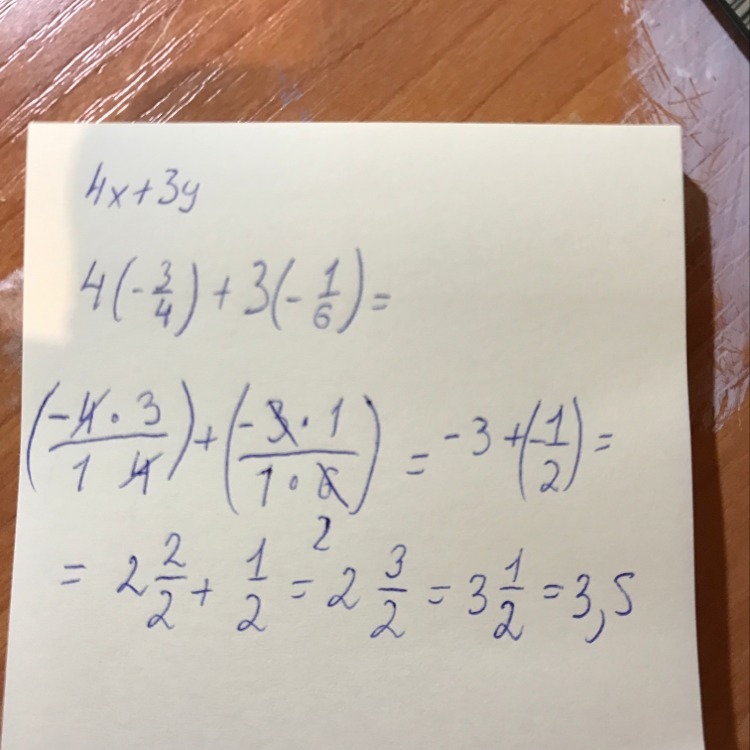 4x+3y
4(-3/4)+3(-1/6)=
(-4·3/1 4)+(-3·1/1·6)=-3+(-1/2)=
2
=2 2/2+1/2=2 3/2=3 1/2=3,5